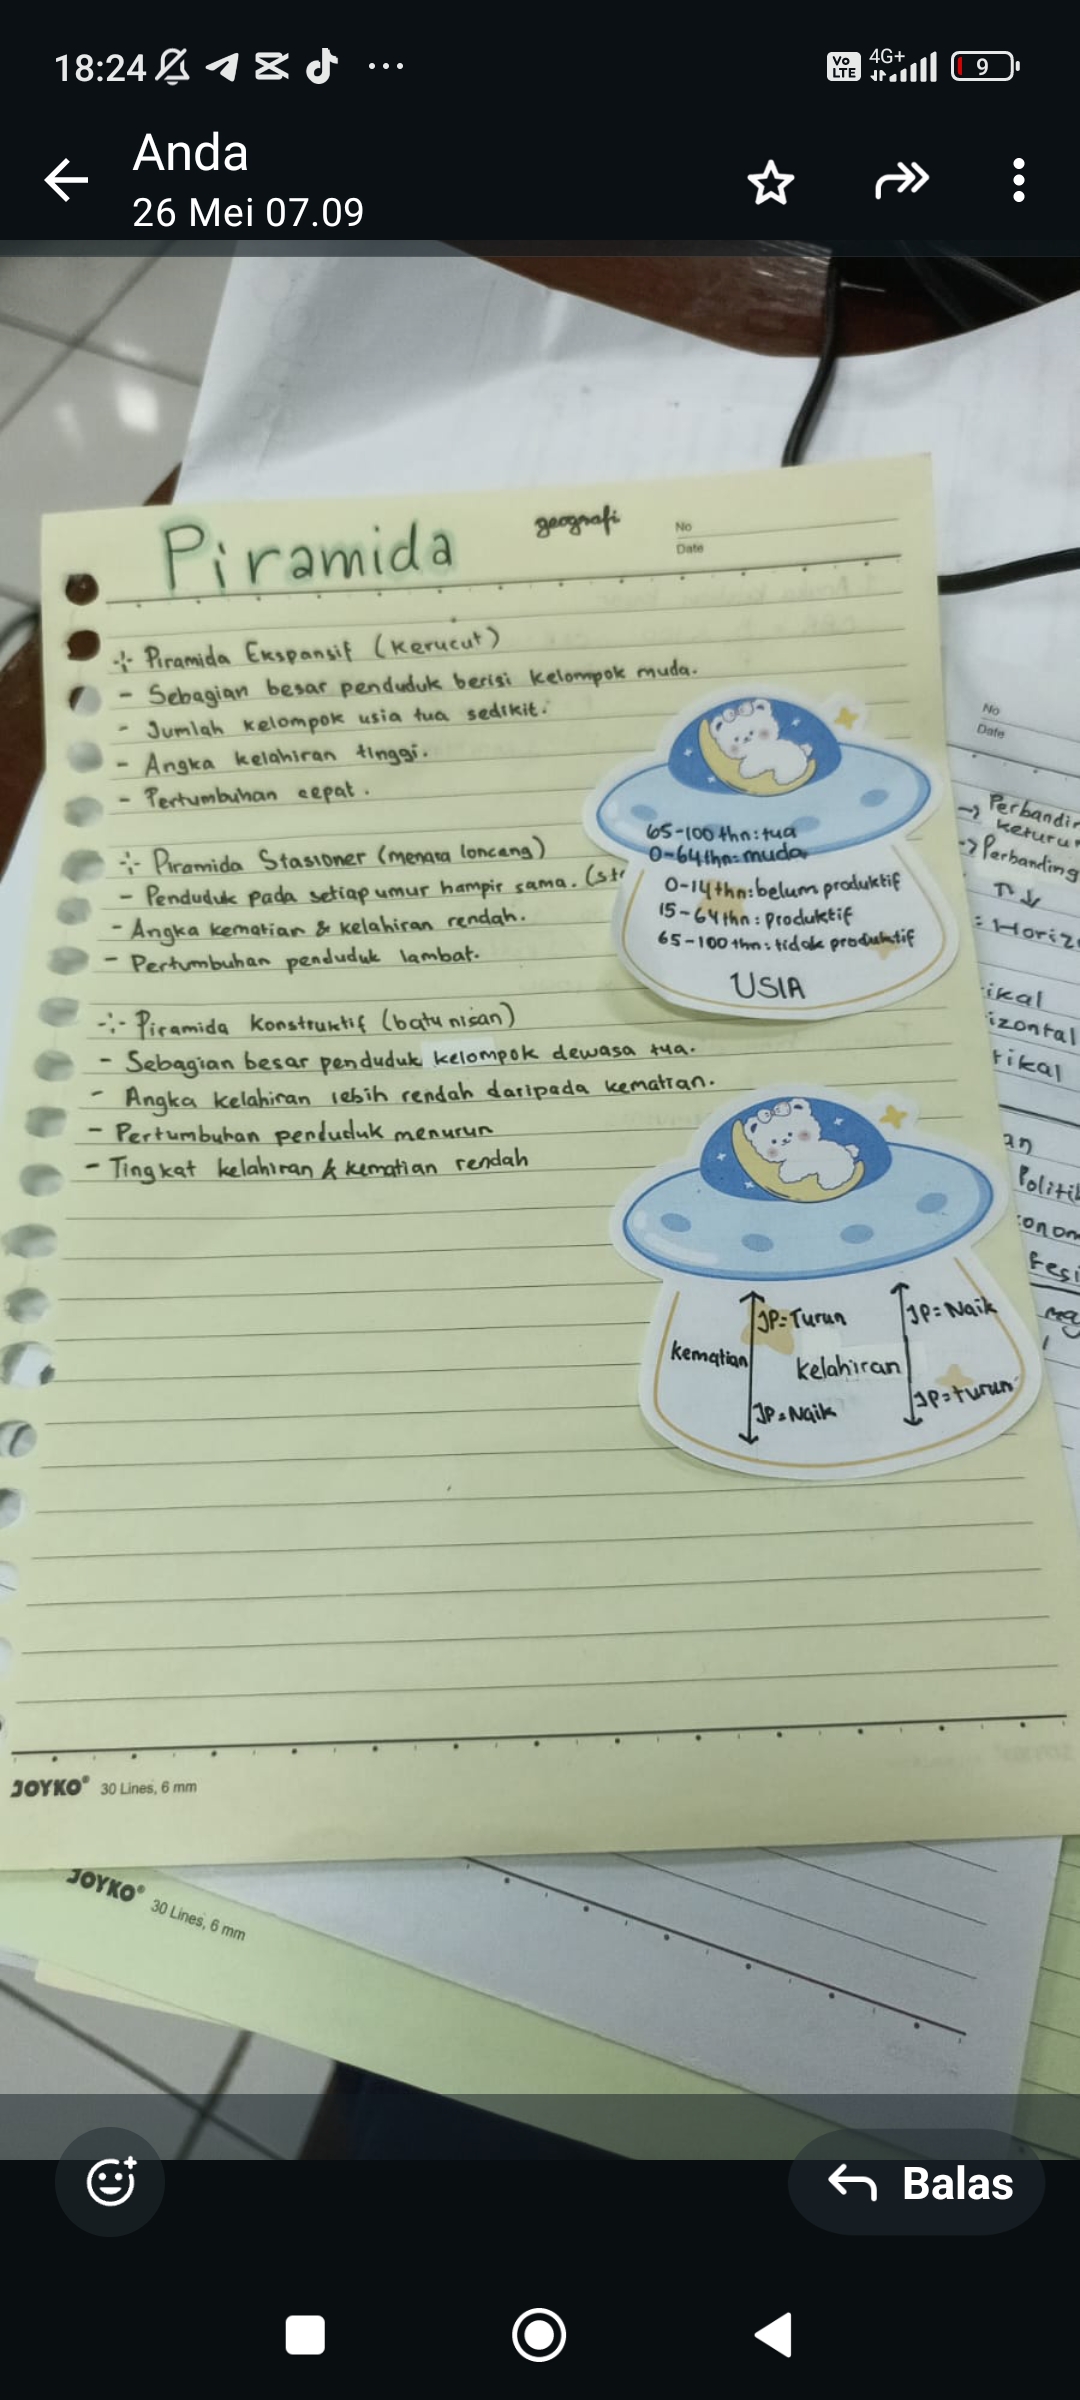 18:24
Vo LTE 4G+ 9
Anda
26 Mei 07.09
Piramida
geografi
No
Date
Piramida Ekspansif (kerucut)
- Sebagian besar penduduk berisi kelompok muda.
- Jumlah kelompok usia tua sedikit.
- Angka kelahiran tinggi.
- Pertumbuhan cepat.
Piramida Stasioner (menara lonceng)
- Penduduk pada setiap umur hampir sama. (st
- Angka kematian & kelahiran rendah.
- Pertumbuhan penduduk lambat.
65-100 thn: tua
0-64 thn: muda
0-14 thn: belum produktif
15-64 thn: produktif
65-100 thn: tidak produktif
USIA
Piramida Konstruktif (batu nisan)
- Sebagian besar penduduk kelompok dewasa tua.
- Angka kelahiran lebih rendah daripada kematian.
- Pertumbuhan penduduk menurun
- Tingkat kelahiran & kematian rendah
kematian
JP=Turun
JP=Naik
kelahiran
JP=Naik
JP=turun
JOYKO® 30 Lines, 6 mm
No
Date
→ Perbandin
keturu
→ Perbanding
↑↓
= Horiz
ikal
izontal
tikal
an
Politik
onom
JOYKO® 30 Lines, 6 mm
Balas